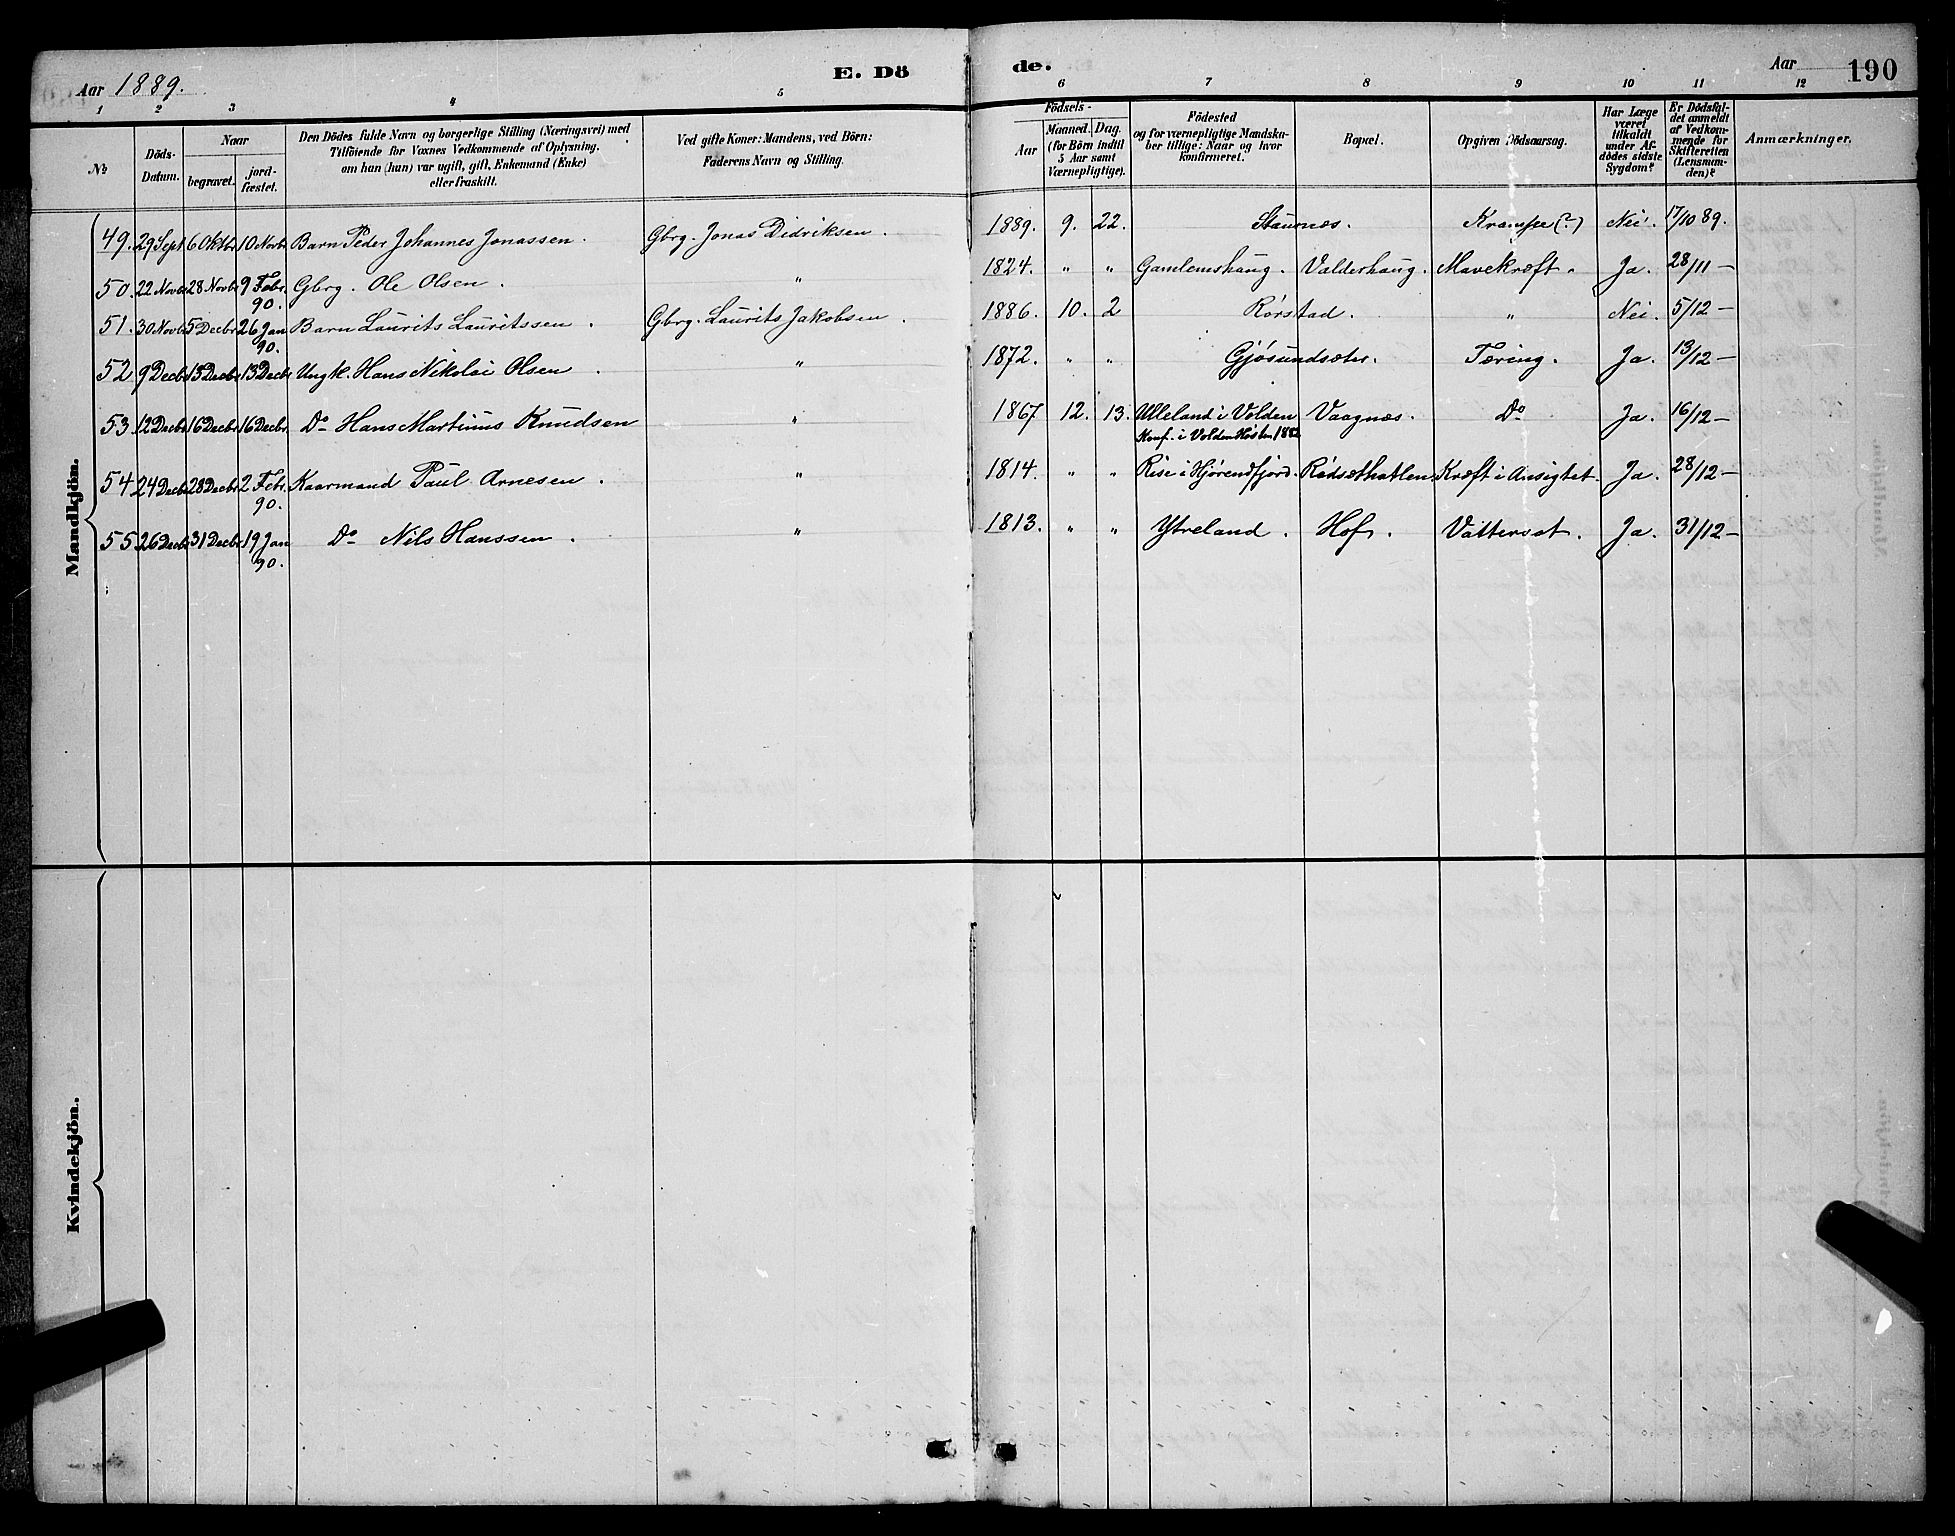 Aar 1889. E. Dö de. Aar 190
1 2 3 4 5 6 7 8 9 10 11 12
№ Döds-Datum. Naar begravet. jord-fæstet. Den Dödes fulde Navn og borgerlige Stilling (Næringsvei) med Tilföiende for Voxnes Vedkommende af Oplysning. om han (hun) var ugift, gift, Enkemand (Enke) eller fraskilt. Ved gifte Koner: Mandens, ved Börn: Faderens Navn og Stilling. Födsels- Aar Maaned. Dag. (for Börn indtil 5 Aar samt Værnepligtige). Födested og for værnepligtige Mandska-ber tillige: Naar og hvor konfirmeret. Bopæl. Opgiven Dödsaarsag. Har Læge været tilkaldt under Af-dödes sidste Sygdom? Er Dödsfal-det anmeldt af Vedkom-mende for Skifteretten (Lensman-den)? Anmærkninger.
Mandkjön.
49. 29 Sept 6 Oktbr 10 Novbr Barn Peder Johannes Jonassen. Gbrg. Jonas Didriksen. 1889. 9. 22. Staurnæs. Krampe (?) Nei. 17/10 89.
50. 22 Novbr 28 Novbr 9 Febr. 90. Gbrg. Ole Olsen. " 1824. " " Gamlemshaug. Valderhaug. Mavekræft. Ja. 28/11 —
51. 30 Novbr 5 Decbr 26 Jan 90. Barn Laurits Lauritssen. Gbrg. Laurits Jakobsen. 1886. 10. 2 Rørstad. " Nei. 5/12 —
52 9 Decbr 13 Decbr 13 Decbr Ungk. Hans Nikolai Olsen. " 1872. " " Gjøsundsæter. Tæring. Ja. 13/12 —
53. 12 Decbr 16 Decbr 16 Decbr. Do Hans Martinus Knudsen " 1867 12. 13. Ulleland i Volden Konf. i Volden Høsten 1882 Vaagnæs. Do Ja. 16/12 —
54 24 Decbr 28 Decbr 2 Febr. 90. Kaarmand Paul Arnesen. " 1814. " " Rise i Hjørendfjord. Rødsæthatlen. Kræft i Ansigtet. Ja. 28/12 —
55 26 Decbr 31 Decbr 19 Jan 90. Do Nils Hanssen. " 1813. " " Ytreland. Hof. Vattersot. Ja. 31/12 —
Kvindekjön.